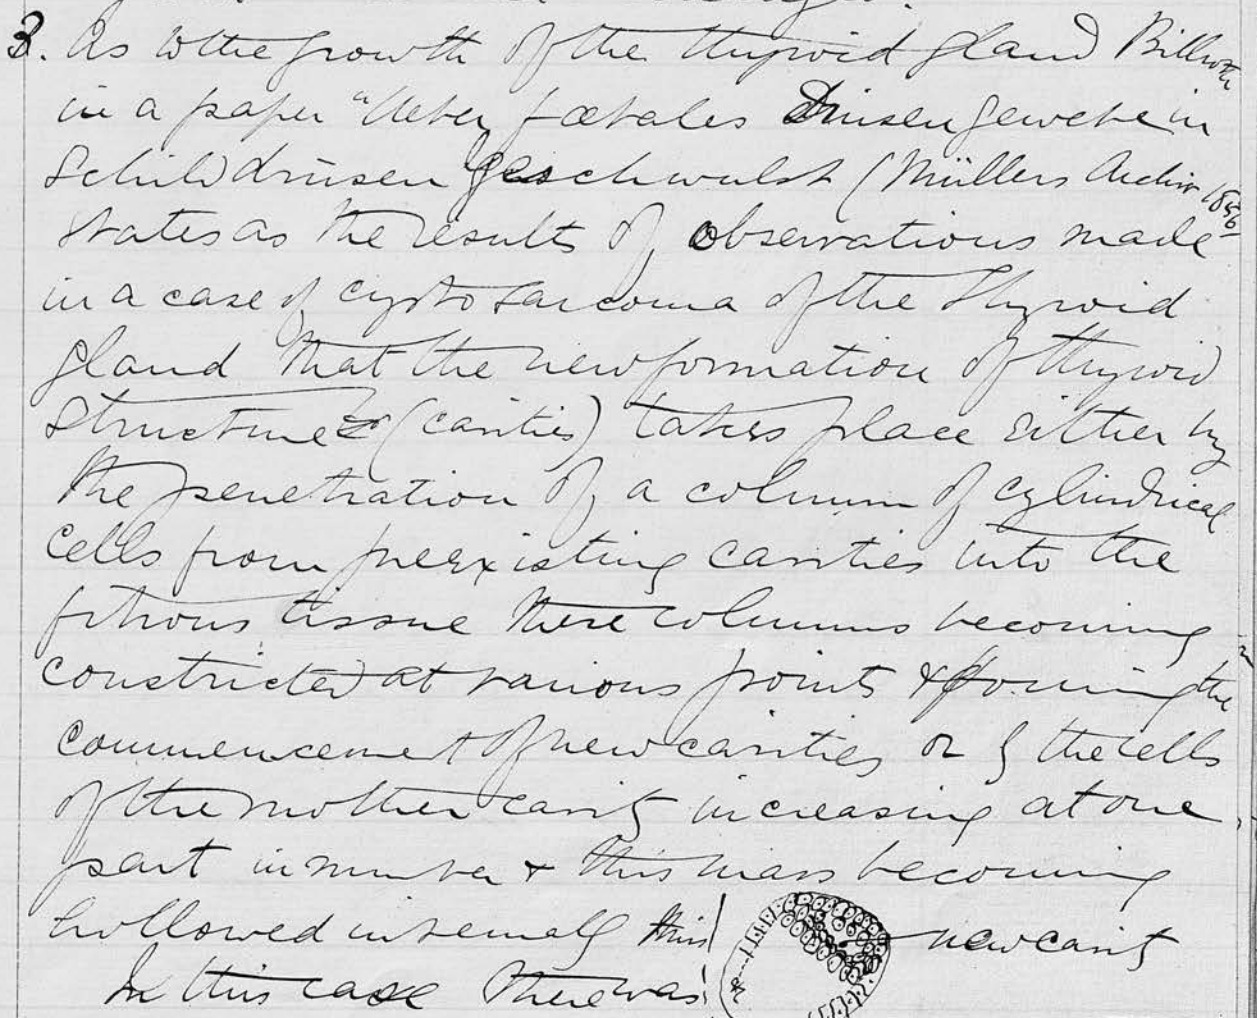 3. As to the growth of the thyroid gland Billroth
in a paper "Ueber foetales Drüsengewebe in
Schilddrüsen geschwulst (Müllers Archiv 1856
states as the results of observations made
in a case of cysto sarcoma of the Thyroid
gland that the new formation of thyroid
structure (cavities) takes place either by
the penetration of a column of cylindrical
cells from preexisting cavities into the
fibrous tissue these columns becoming
constricted at various points & forming the
commencement of new cavities or by the cells
of the mother cavity increasing at one
part in number & this mass becoming
hollowed internally thus new cavity
In this case there was